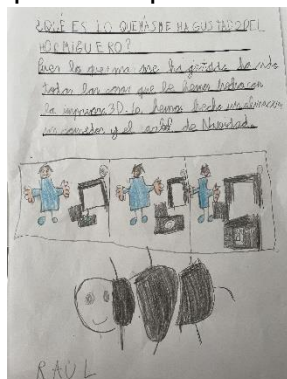 ¿QUÉ ES LO QUEMÁSME HAGUSTADODEL
HORMIGUERO?
Pues lo que ma me ha gustado ha sido
todas las cosas que le hemos hecho con
la impresora 3D. lo hemos hecho un
un comedor y el de Navidad.
RAÚL